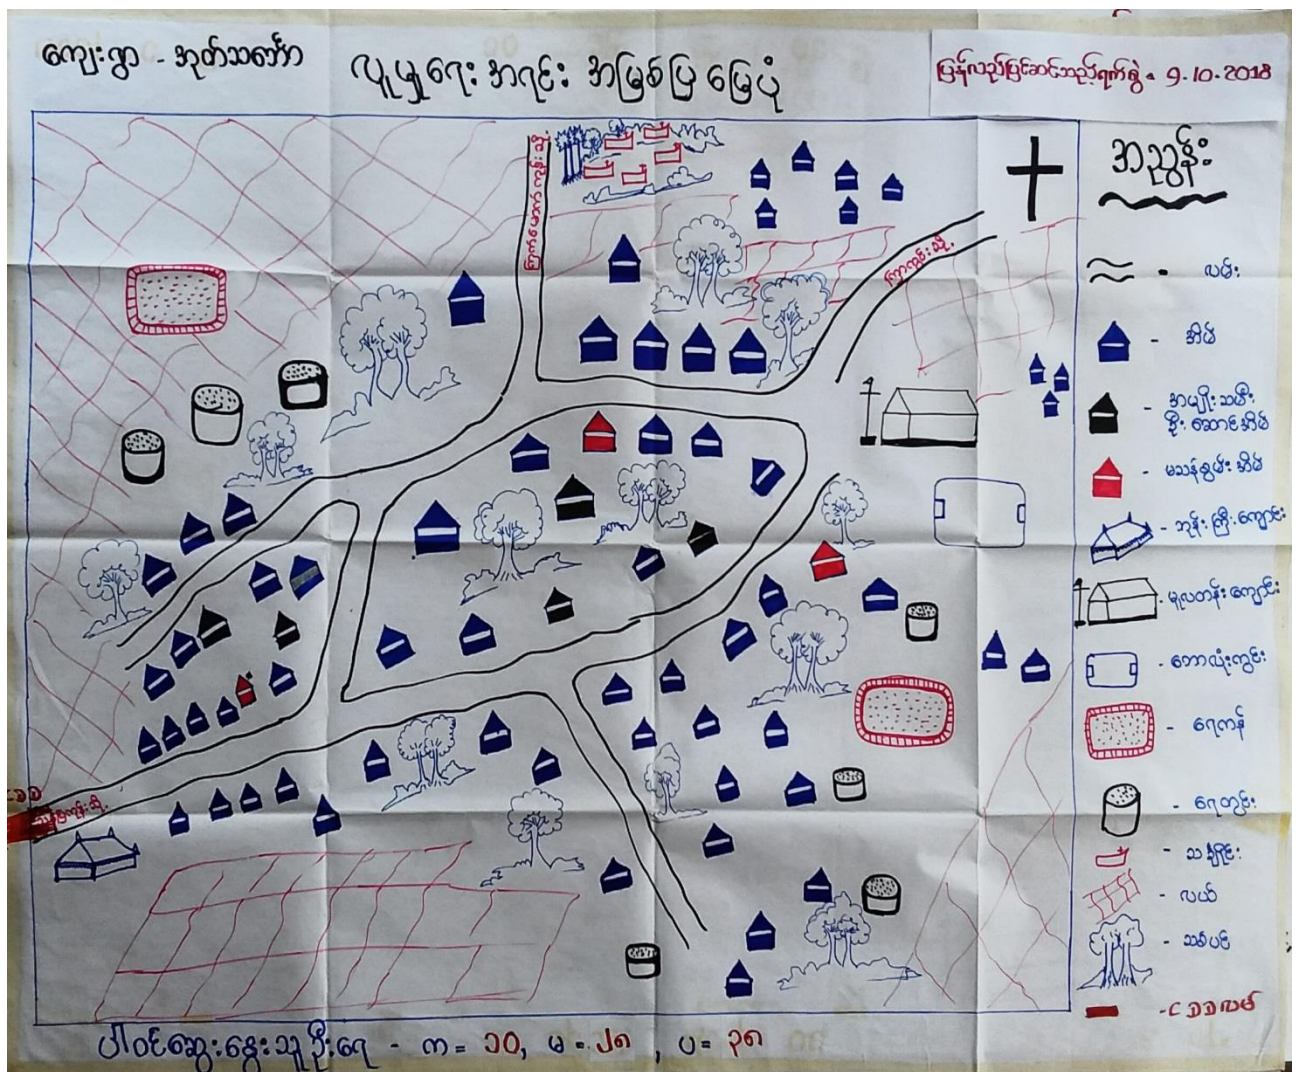 ကျေးရွာ - အုတ်သင်္ဘော
လူမှုရေး အရင်း အမြစ်ပြ မြေပုံ
ပြန်လည်ပြင်ဆင်သည့်ရက်စွဲ - 9-10-2018
အညွှန်း
လမ်း
အိမ်
အမျိုးသမီး
ဦးဆောင်အိမ်
မသန်စွမ်းအိမ်
ဘုန်းကြီးကျောင်း
မူလတန်းကျောင်း
ဘောလုံးကွင်း
ရေကန်
ရေတွင်း
သင်္ချိုင်း
လယ်
သစ်ပင်
ပါဝင်ဆွေးနွေးသူဦးရေ - က = ၁၀, မ = ၂၈, ပ = ၃၈